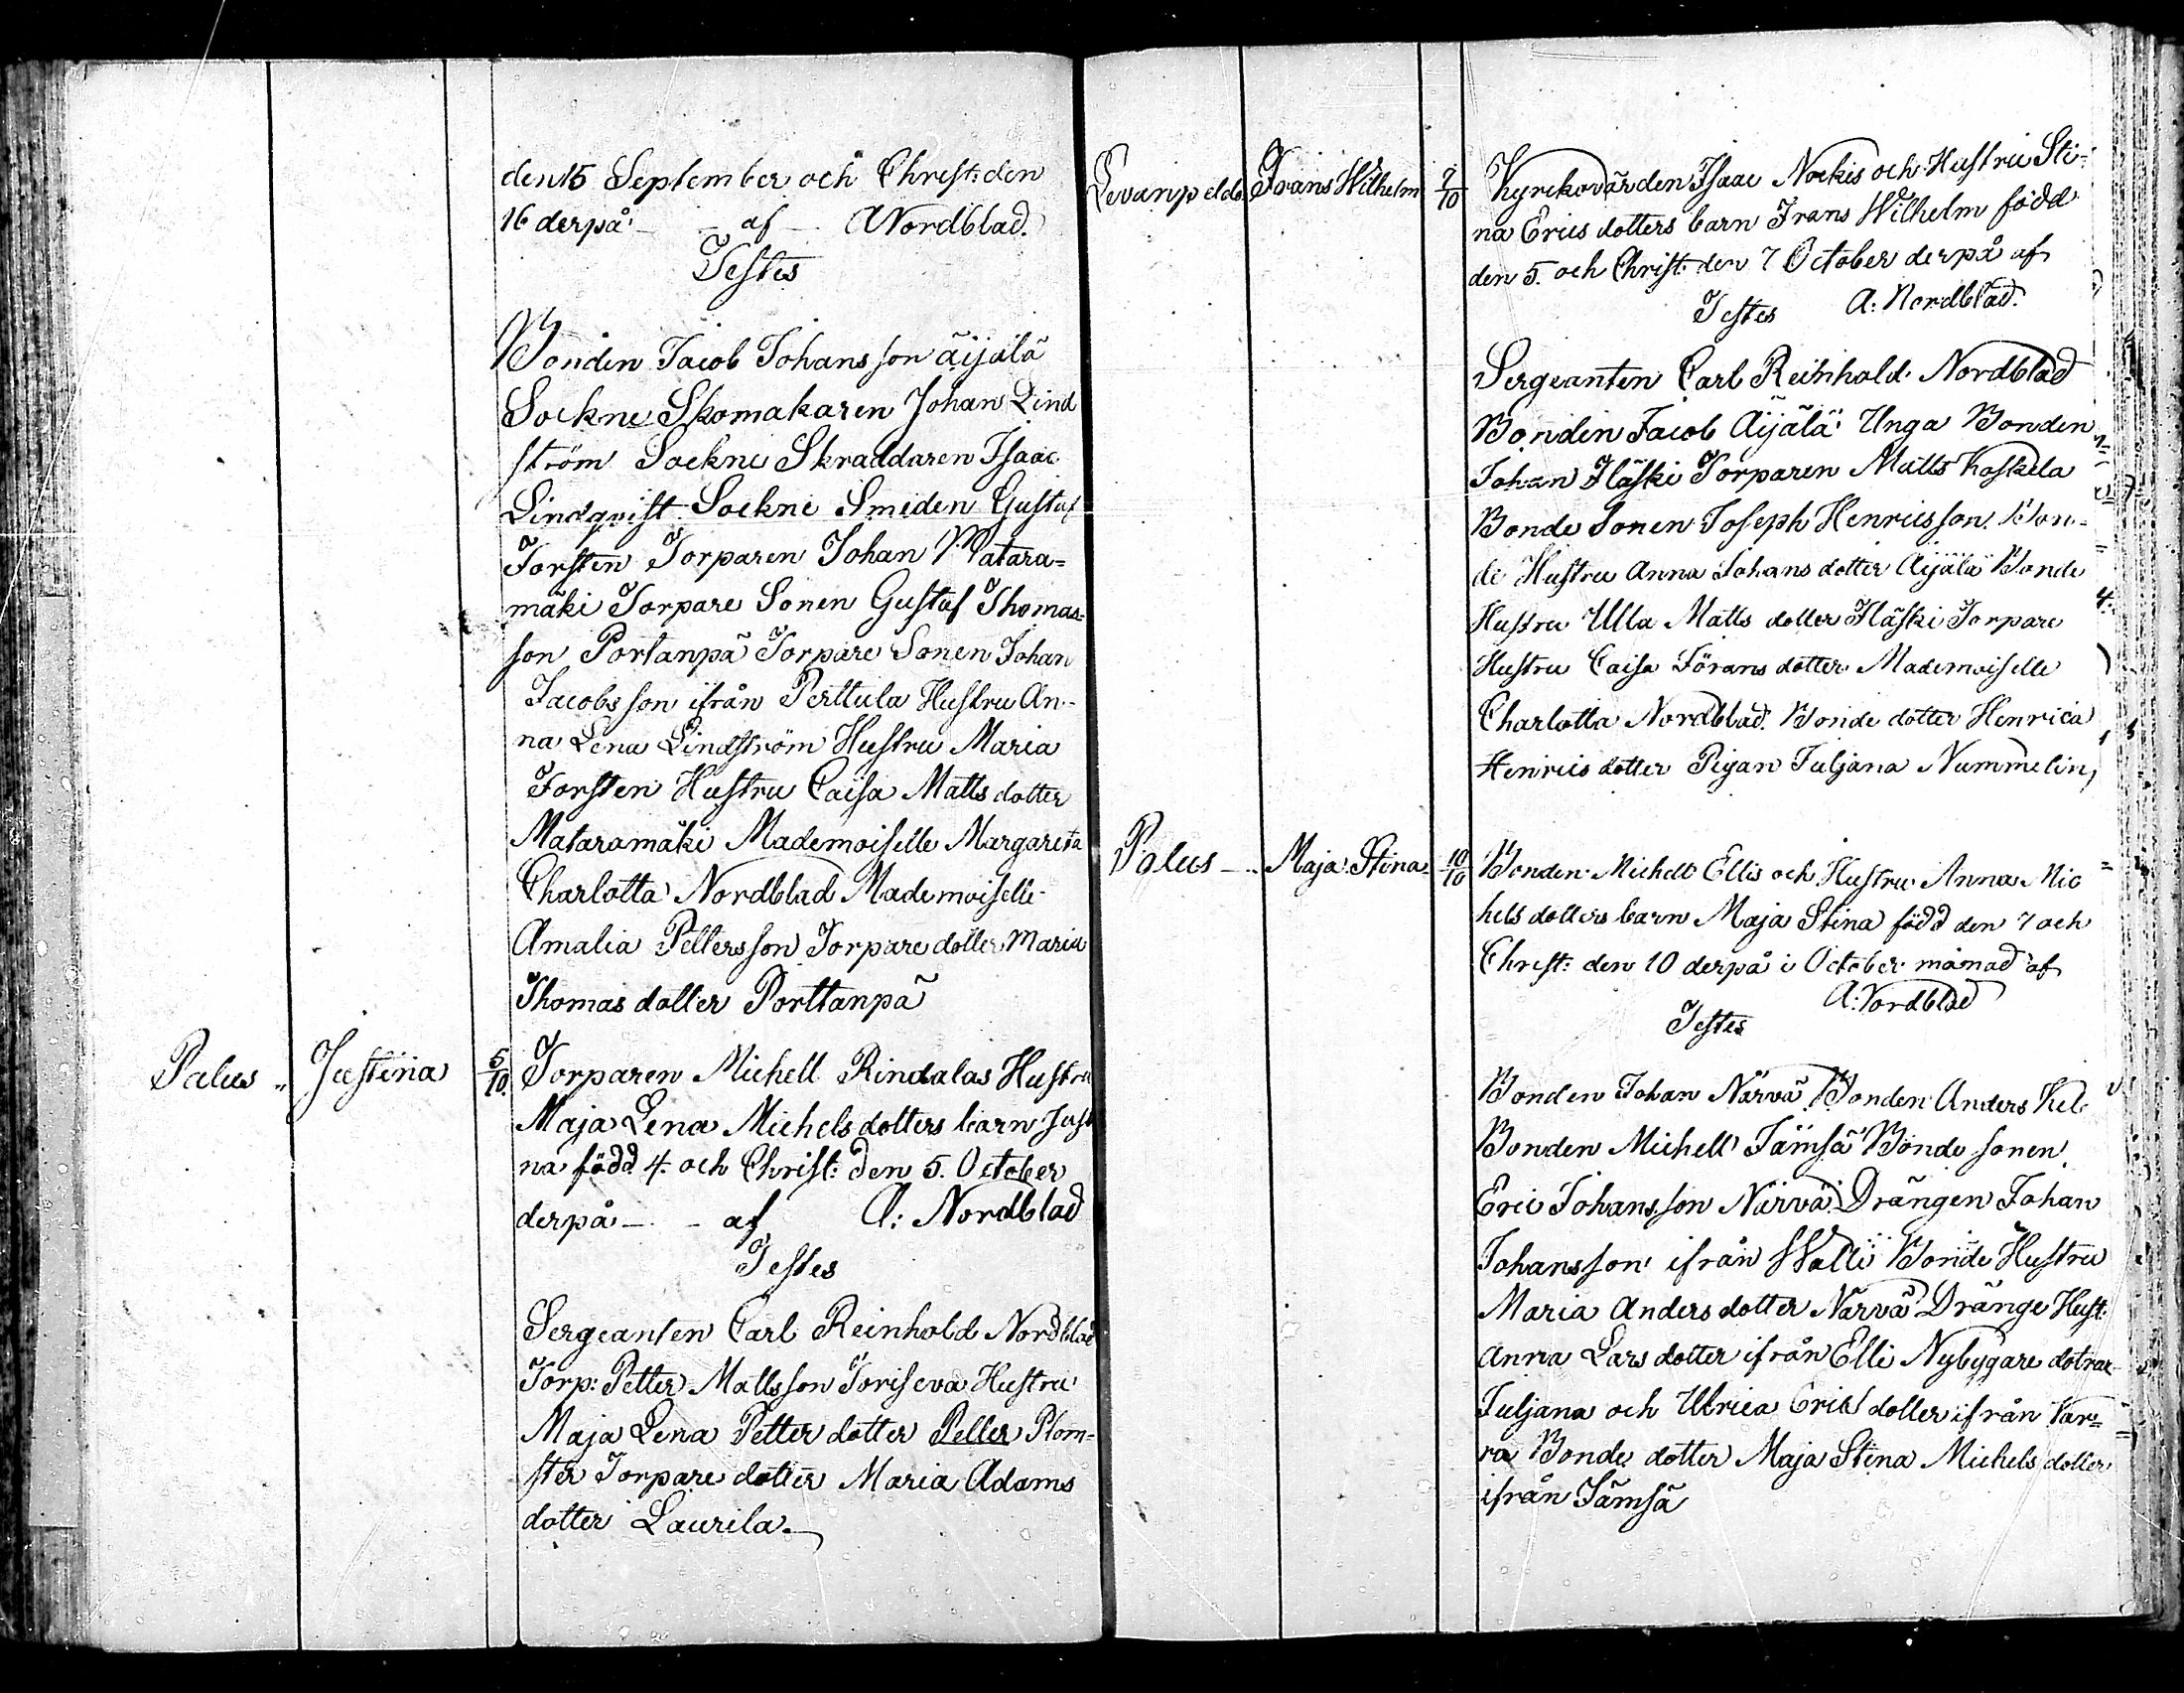 den 15 September och Christ: den
16 derpå - - af - A Nordblad.
Testes
Bonden Jacob Johansson Äijälä
Sockne Skomakaren Johan Lind
ström Sockne Skraddaren Isaac
Lindqvist Sockne Smeden Gustaf
Forsten Torparen Johan Matara=
mäki Torpare Sonen Gustaf Thomas=
son Portanpä Torpare Sonen Johan
Jacobsson ifrån Perttula Hustru An-
na Lena Lindström Hustru Maria
Forsten Hustru Caisa Matts dotter
Mataramäki Mademoiselle Margareta
Charlotta Nordblad Mademoiselle
Amalia Pettersson Torpare dotter Maria
Thomas dotter Porttanpä
Palus " Justina 5/10. Torparen Michell Rindalas Hustru
Maja Lena Michels dotters barn Just
na född 4. och Christ: den 5. October
derpå - - af A: Nordblad
Testes
Sergeanten Carl Reinhold Nordblad
Torp: Petter Mattsson Toriseva Hustru
Maja Lena Petter dotter Peller Plom-
ster Torpare dotter Maria Adams
dotter Laurila.
Levanpeldo Frans Wilhelm 7/10 Kyrckovärden Isaac Nockis och Hustru Sti=
na Erics dotters barn Frans Wilhelm född
den 5. och Christ: den 7 October derpå af
Testes A: Nordblad.
Sergeanten Carl Reinhold Nordblad
Bonden Jacob Äijälä Unga Bonden
Johan Fläski Torparen Matts Koskela
Bonde Sonen Joseph Henricsson. Bon=
de Hustru Anna Johans dotter Äijälä Bonde
Hustru Ulla Matts dotter Fläski Torpare
Hustru Caisa Görans dotter Mademoiselle
Charlotta Nordblad. Bonde dotter Henrica
Henrics dotter Pigan Juljana Nummelin,
Palus - .. Maja Stina 10/10 Bonden Michell Ellis och Hustru Anna Mic
hels dotters barn Maja Stina född den 7 och
Christ: den 10 derpå i October månad af
A: Nordblad
Testes
Bonden Johan Närvä Bonden Anders
Bonden Michell Jämsä Bonde sonen
Eric Johansson Närvä Drängen Johan
Johansson ifrån Walli Bonde Hustru
Maria Anders dotter Närvä Dränge Hust:
Anna Lars dotter ifrån Elli Nybygare dotrar
Juljana och Ulrica Erics dotter ifrån Var=
ra Bonde dotter Maja Stina Michels dotter
ifrån Jämsä